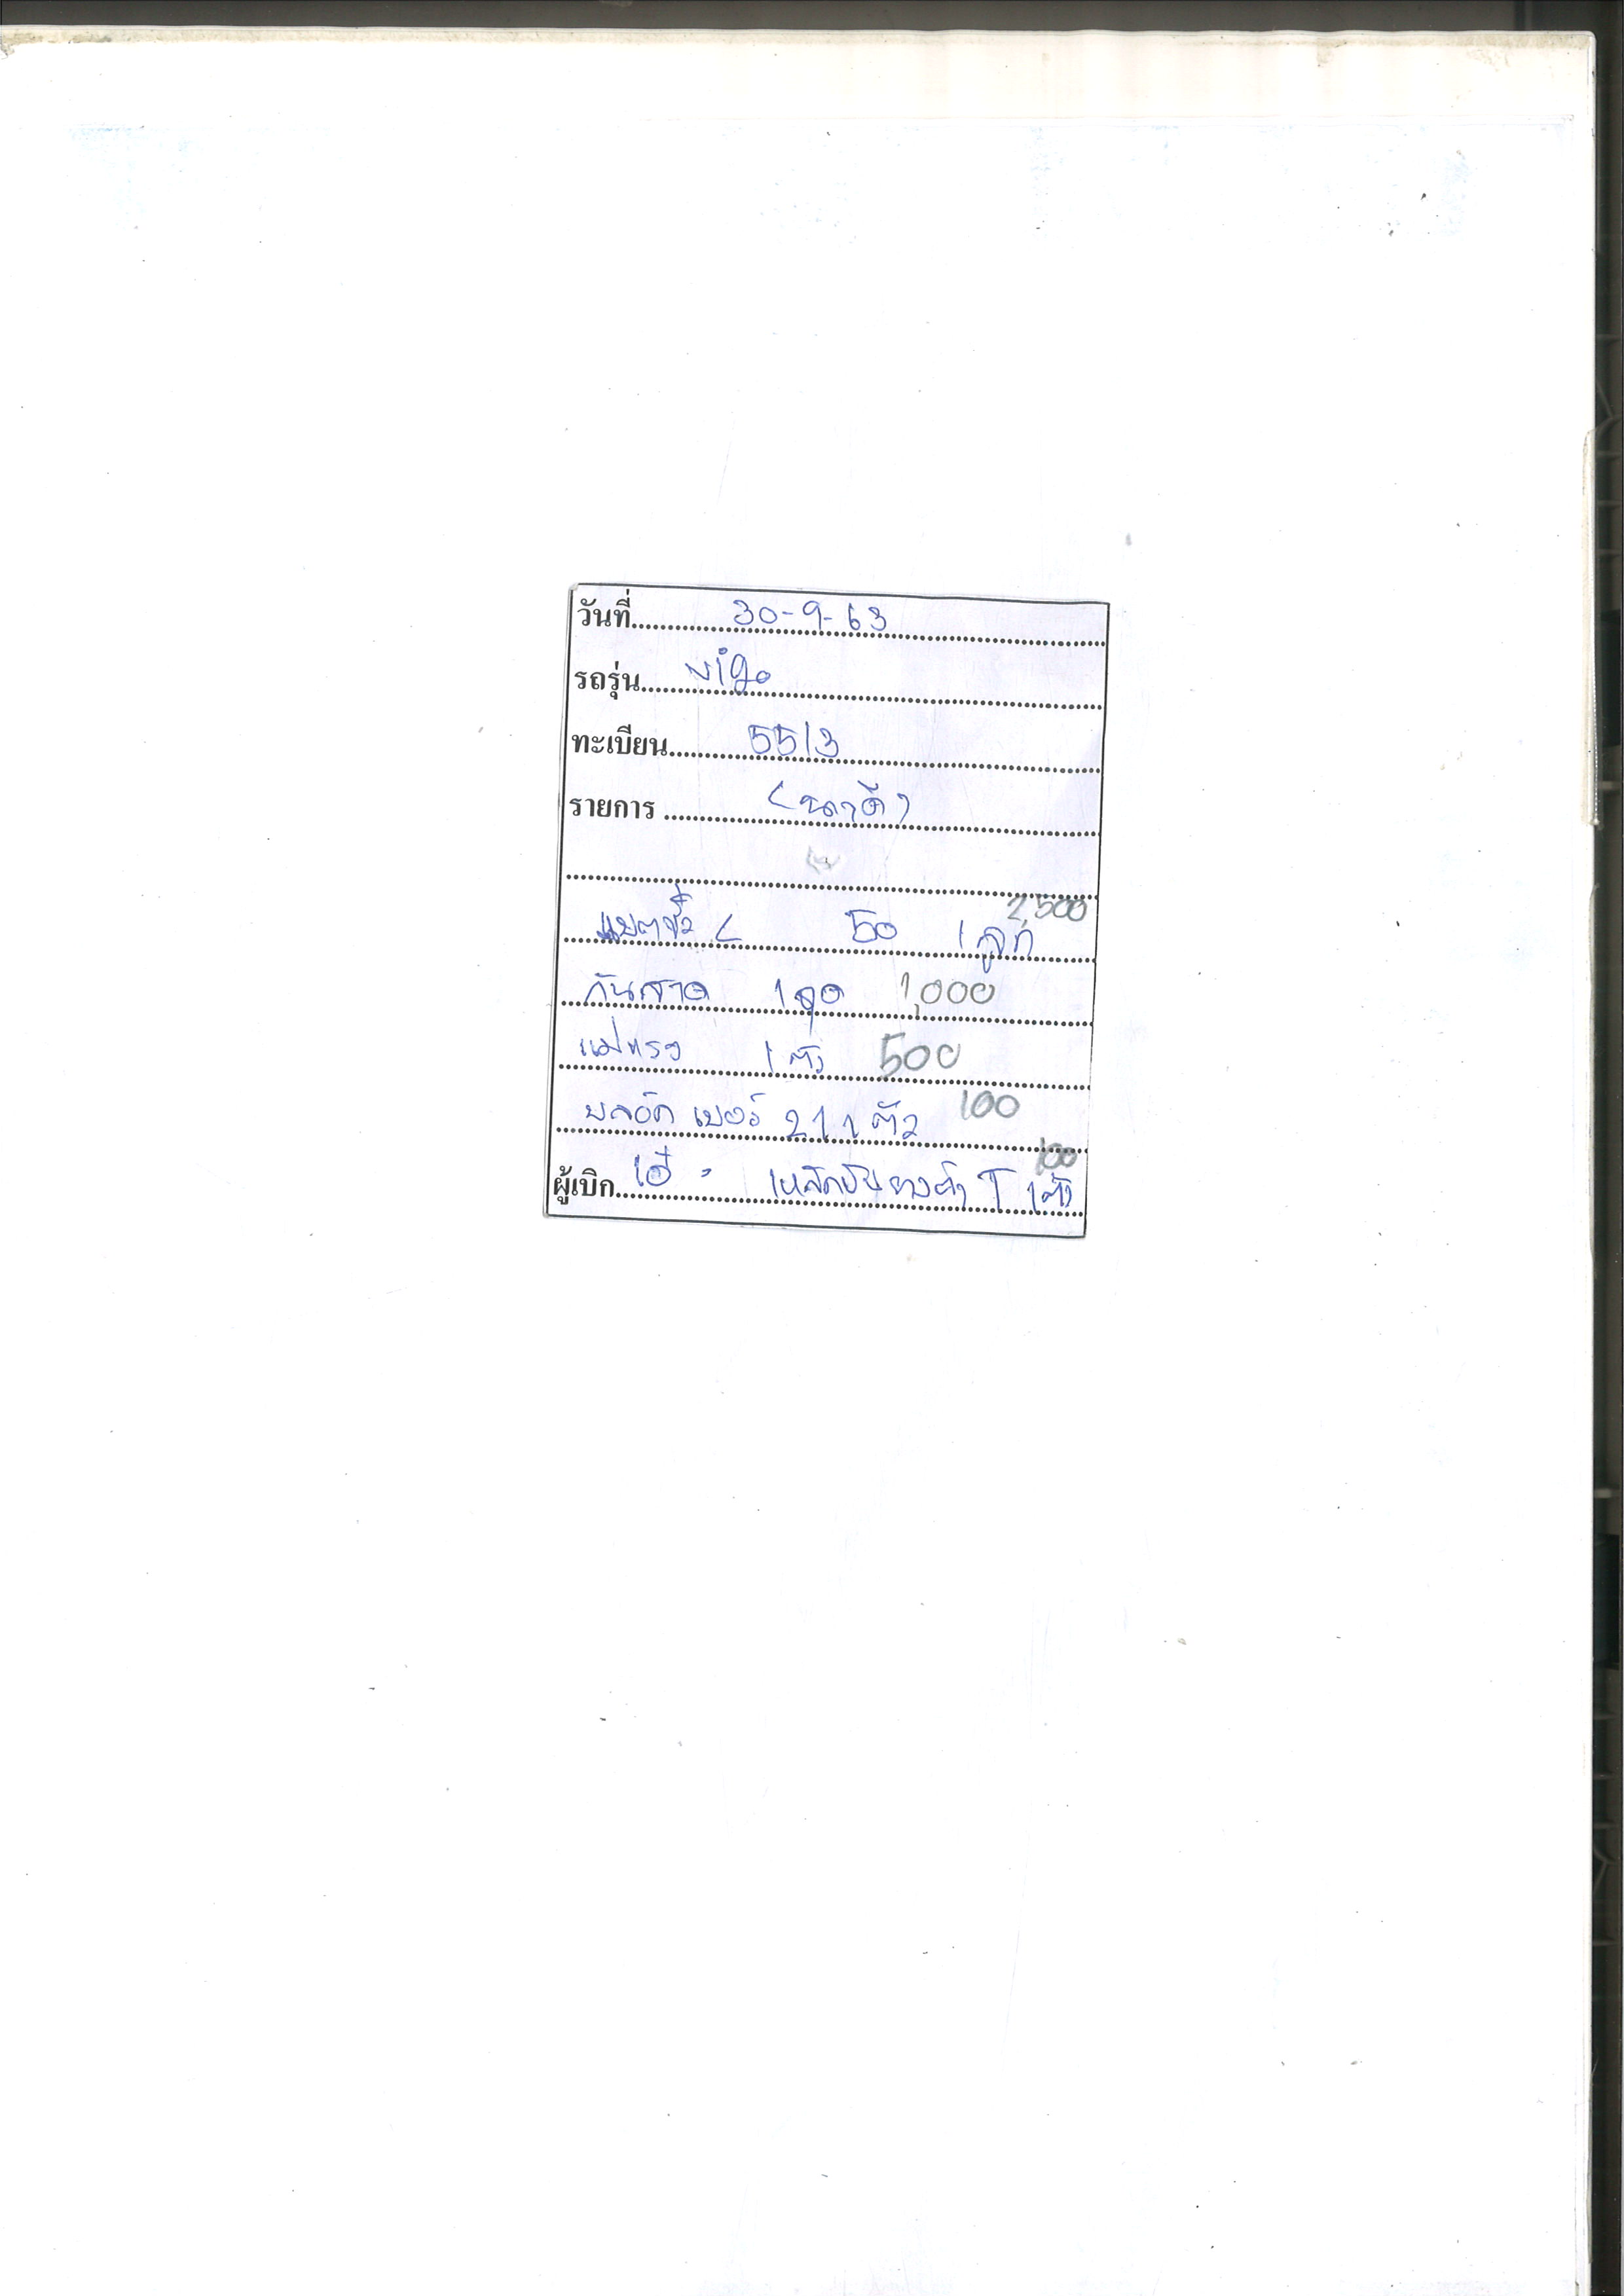 วันที่ 30-9-63
รถรุ่น vigo
ทะเบียน 5513
รายการ (นาดี)
2,500
แบตขั้ว L 50 1 ลูก
กันสาด 1 ชุด 1,000
แม่แรง 1 ตัว 500
บลอ๊ค เบอร์ 21 1 ตัว 100
100
ผู้เบิก เอ๋ เหล็กขันยางตัว T 1 ตัว